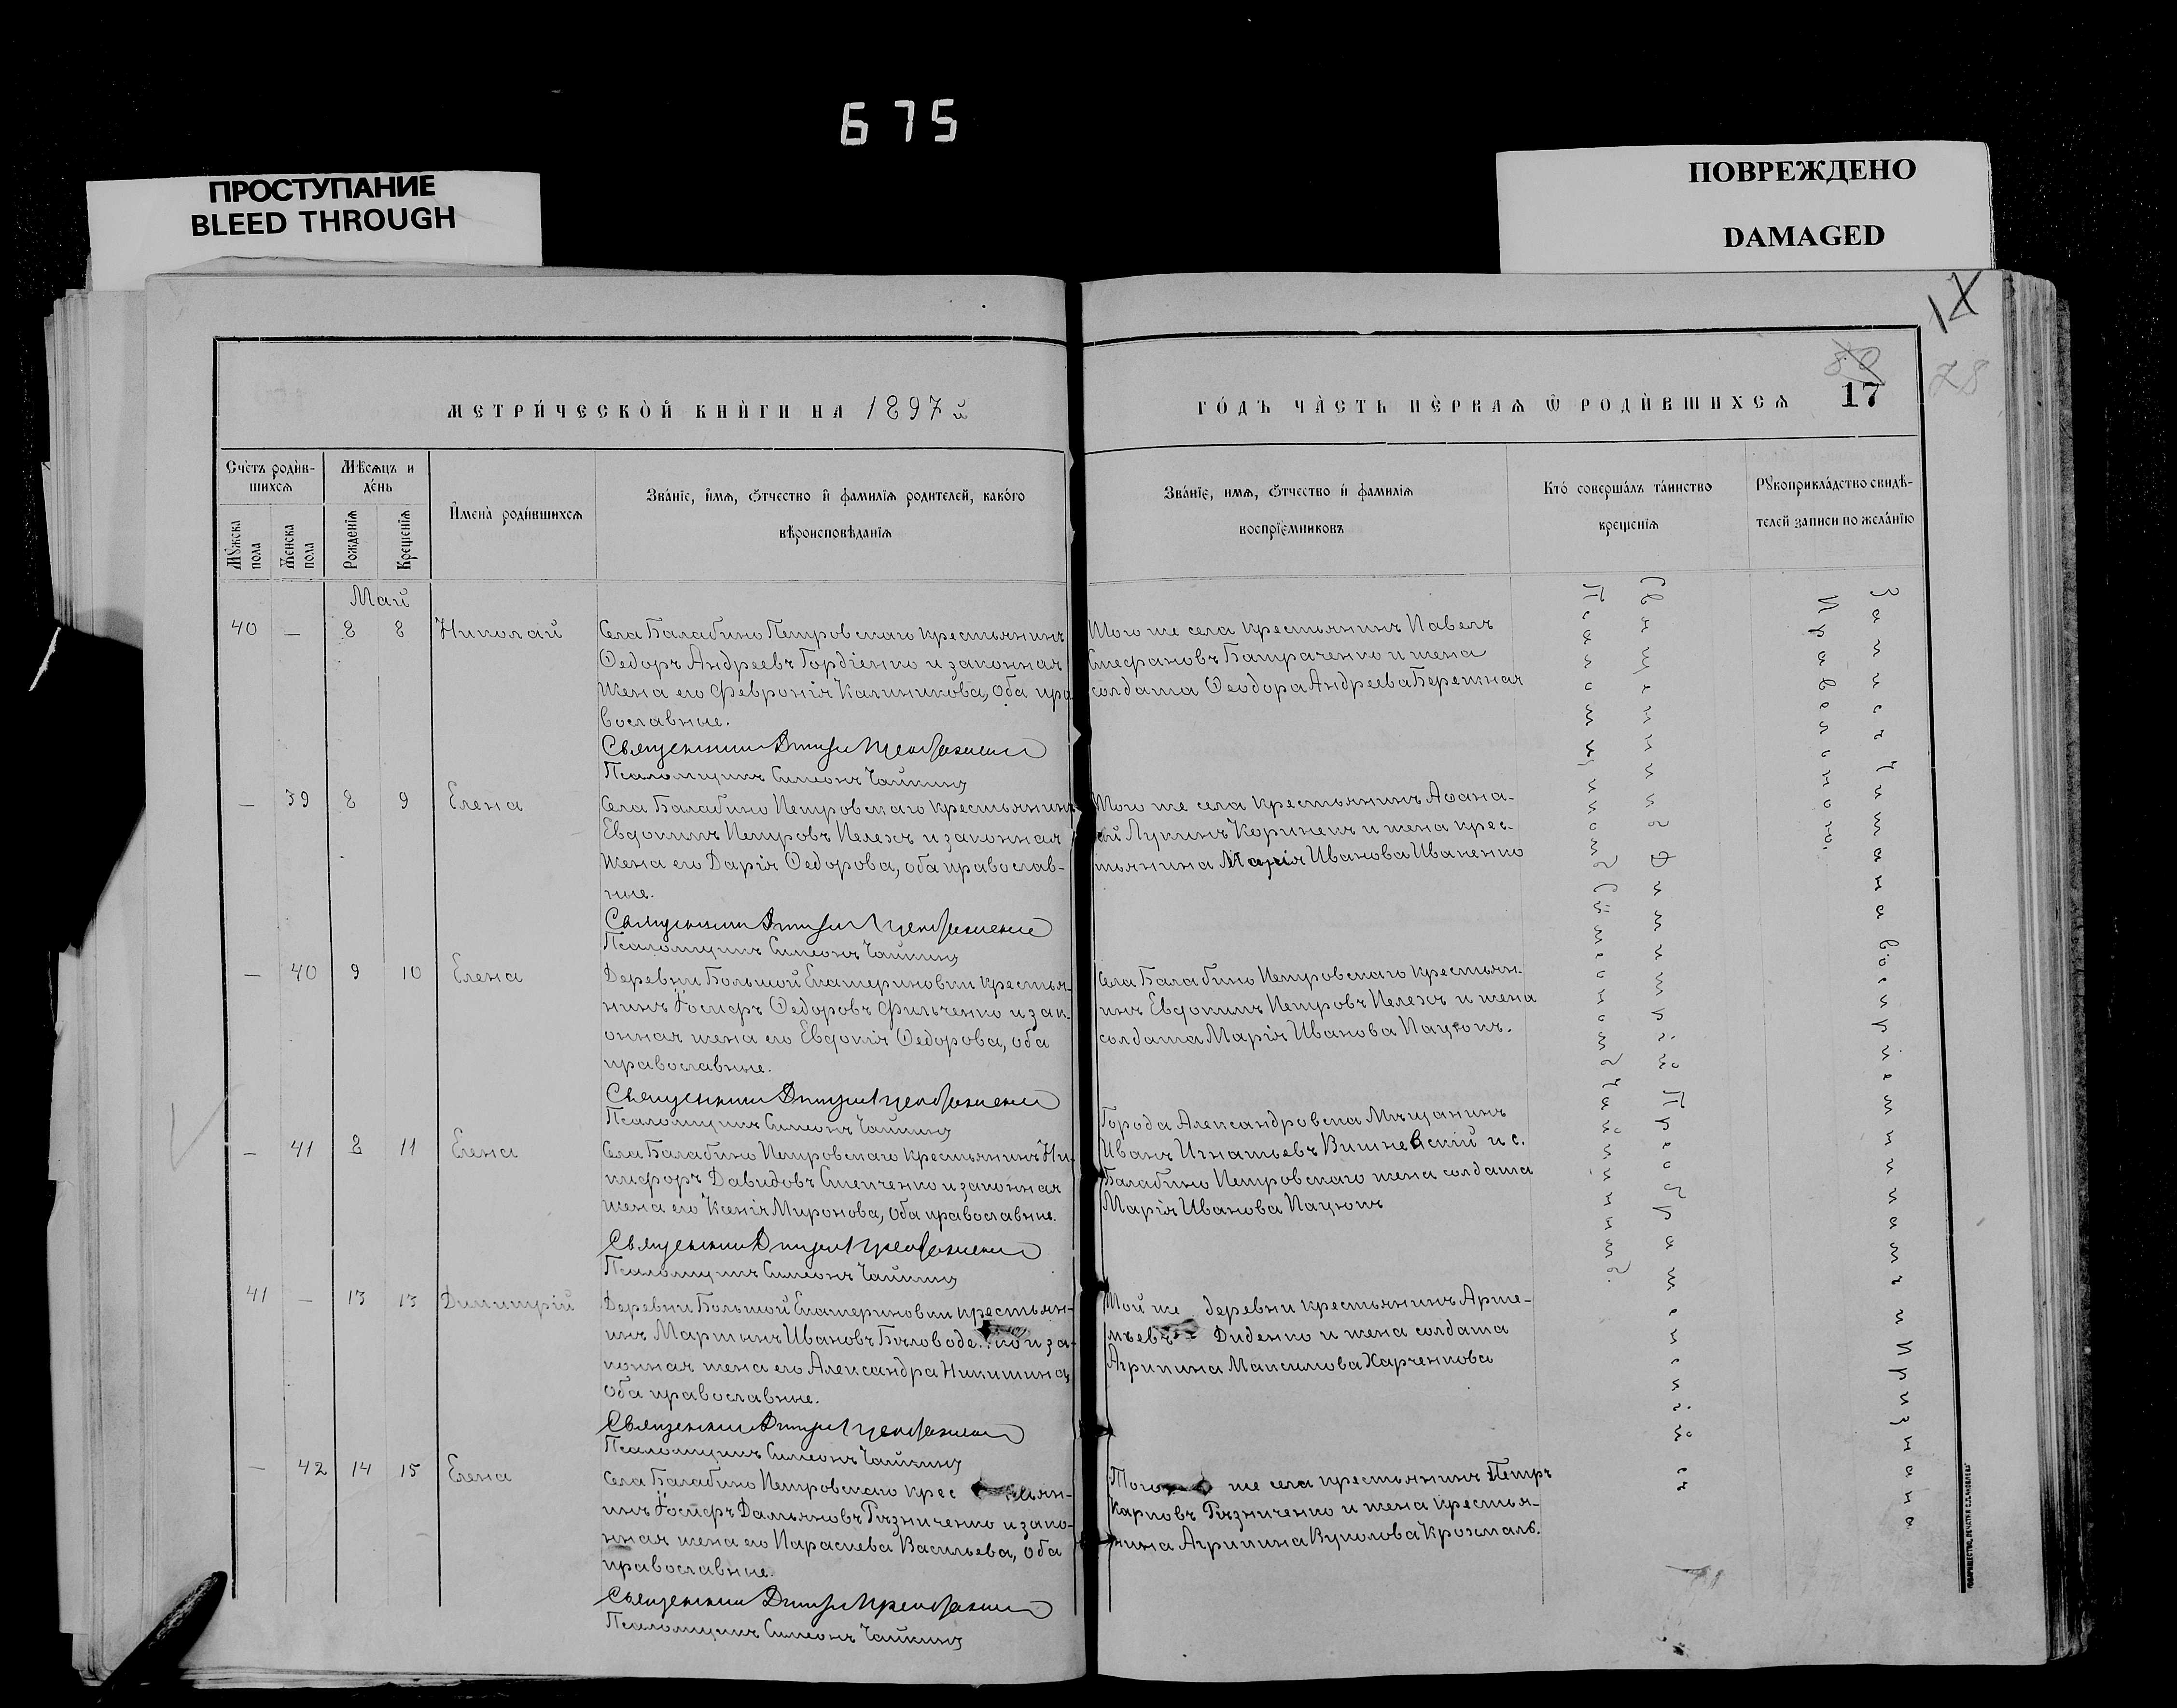 675
ПРОСТУПАНИЕ
BLEED THROUGH
ПОВРЕЖДЕНО
DAMAGED
80
28
17
МЕТРИ́ЧЕСКОЙ КНИ́ГИ НА 1897 й
ГО́ДЪ ЧА́СТЬ ПЕ́РВАѦ Ѡ РОДИ́ВШИХСѦ
Сче́тъ роди́в-
шихсѧ
Мꙋ́жеска пола
Же́нска пола
Мѣ́сѧцъ и
де́нь
Рожденїѧ
Крещенїѧ
И҆мена̀ роди́вшихсѧ
Зва́нїе, и҆́мѧ, ѻ҆́тчество и҆ фами́лїѧ родителей, како́го
вѣроисповѣ́данїѧ
Зва́нїе, имѧ, ѻ҆́тчество и҆ фами́лїѧ
воспрїе́мниковъ
Кто́ соверша́лъ та́инство
креще́нїѧ
Рꙋкоприкла́дство свидѣ́-
телей записи по жела́нїю
Май
40 — 8 8 Николай
Села Балабино Петровскаго крестьянинъ
Ѳедоръ Андреевъ Гордіенко и законная
жена его Февронія Калиникова, оба пра
вославные.
Священникъ Димитрій Преображенскій
Псаломщикъ Симеонъ Чайкинъ
Того же села крестьянинъ Павелъ
Стефановъ Батраченко и жена
солдата Ѳеодора Андреева Бережная
— 39 8 9 Елена
Села Балабино Петровскаго крестьянинъ
Евдокимъ Петровъ Пелехъ и законная
жена его Дарія Ѳедорова, оба православ-
ные.
Священникъ Димитрій Преображенскій
Псаломщикъ Симеонъ Чайкинъ
Того же села крестьянинъ Аѳана-
сій Лукинъ Коринецъ и жена крес-
тьянина Марія Иванова Иваненко
— 40 9 10 Елена
Деревни Большой Екатериновки крестья-
нинъ Іосифъ Ѳедоровъ Фильченко и зак-
онная жена его Евдокія Ѳедорова, оба
православные.
Священникъ Димитрій Преображенскій
Псаломщикъ Симеонъ Чайкинъ
Села Балабино Петровскаго крестьян-
инъ Евдокимъ Петровъ Пелехъ и жена
солдата Марія Иванова Пацюкъ.
— 41 8 11 Елена
Села Балабино Петровскаго крестьянинъ Ни-
кифоръ Давидовъ Степченко и законная
жена его Ксенія Миронова, оба православные.
Священникъ Димитрій Преображенскій
Псаломщикъ Симеонъ Чайкинъ
Города Александровска Мѣщанинъ
Иванъ Игнатьевъ Вишневскій и с.
Балабино Петровскаго жена солдата
Марія Иванова Пацюкъ
41 — 13 13 Димитрій
Деревни Большой Екатериновки крестьян-
инъ Мартинъ Ивановъ и за-
конная жена его Александра Никитина,
оба православные.
Священникъ Димитрій Преображенскій
Псаломщикъ Симеонъ Чайкинъ
Той же деревни крестьянинъ Арте-
мъевъ Диденко и жена солдата
Агрипина Максимова Харченкова
— 42 14 15 Елена
Села Балабино Петровскаго крестьян-
инъ Іосифъ Дамьяновъ Рязниченко и зако-
нная жена его Параскева Васильева, оба
православные.
Священникъ Димитрій Преображенскій
Псаломщикъ Симеонъ Чайкинъ
Того же села крестьянинъ Петръ
Карповъ Рязниченко и жена крестья-
нина Агрипина Вуколова
Священникъ Димитрій Преображенскій съ
Псаломщикомъ Симеономъ Чайкинымъ.
Запись читана воспріемникамъ и признана
Правильною.